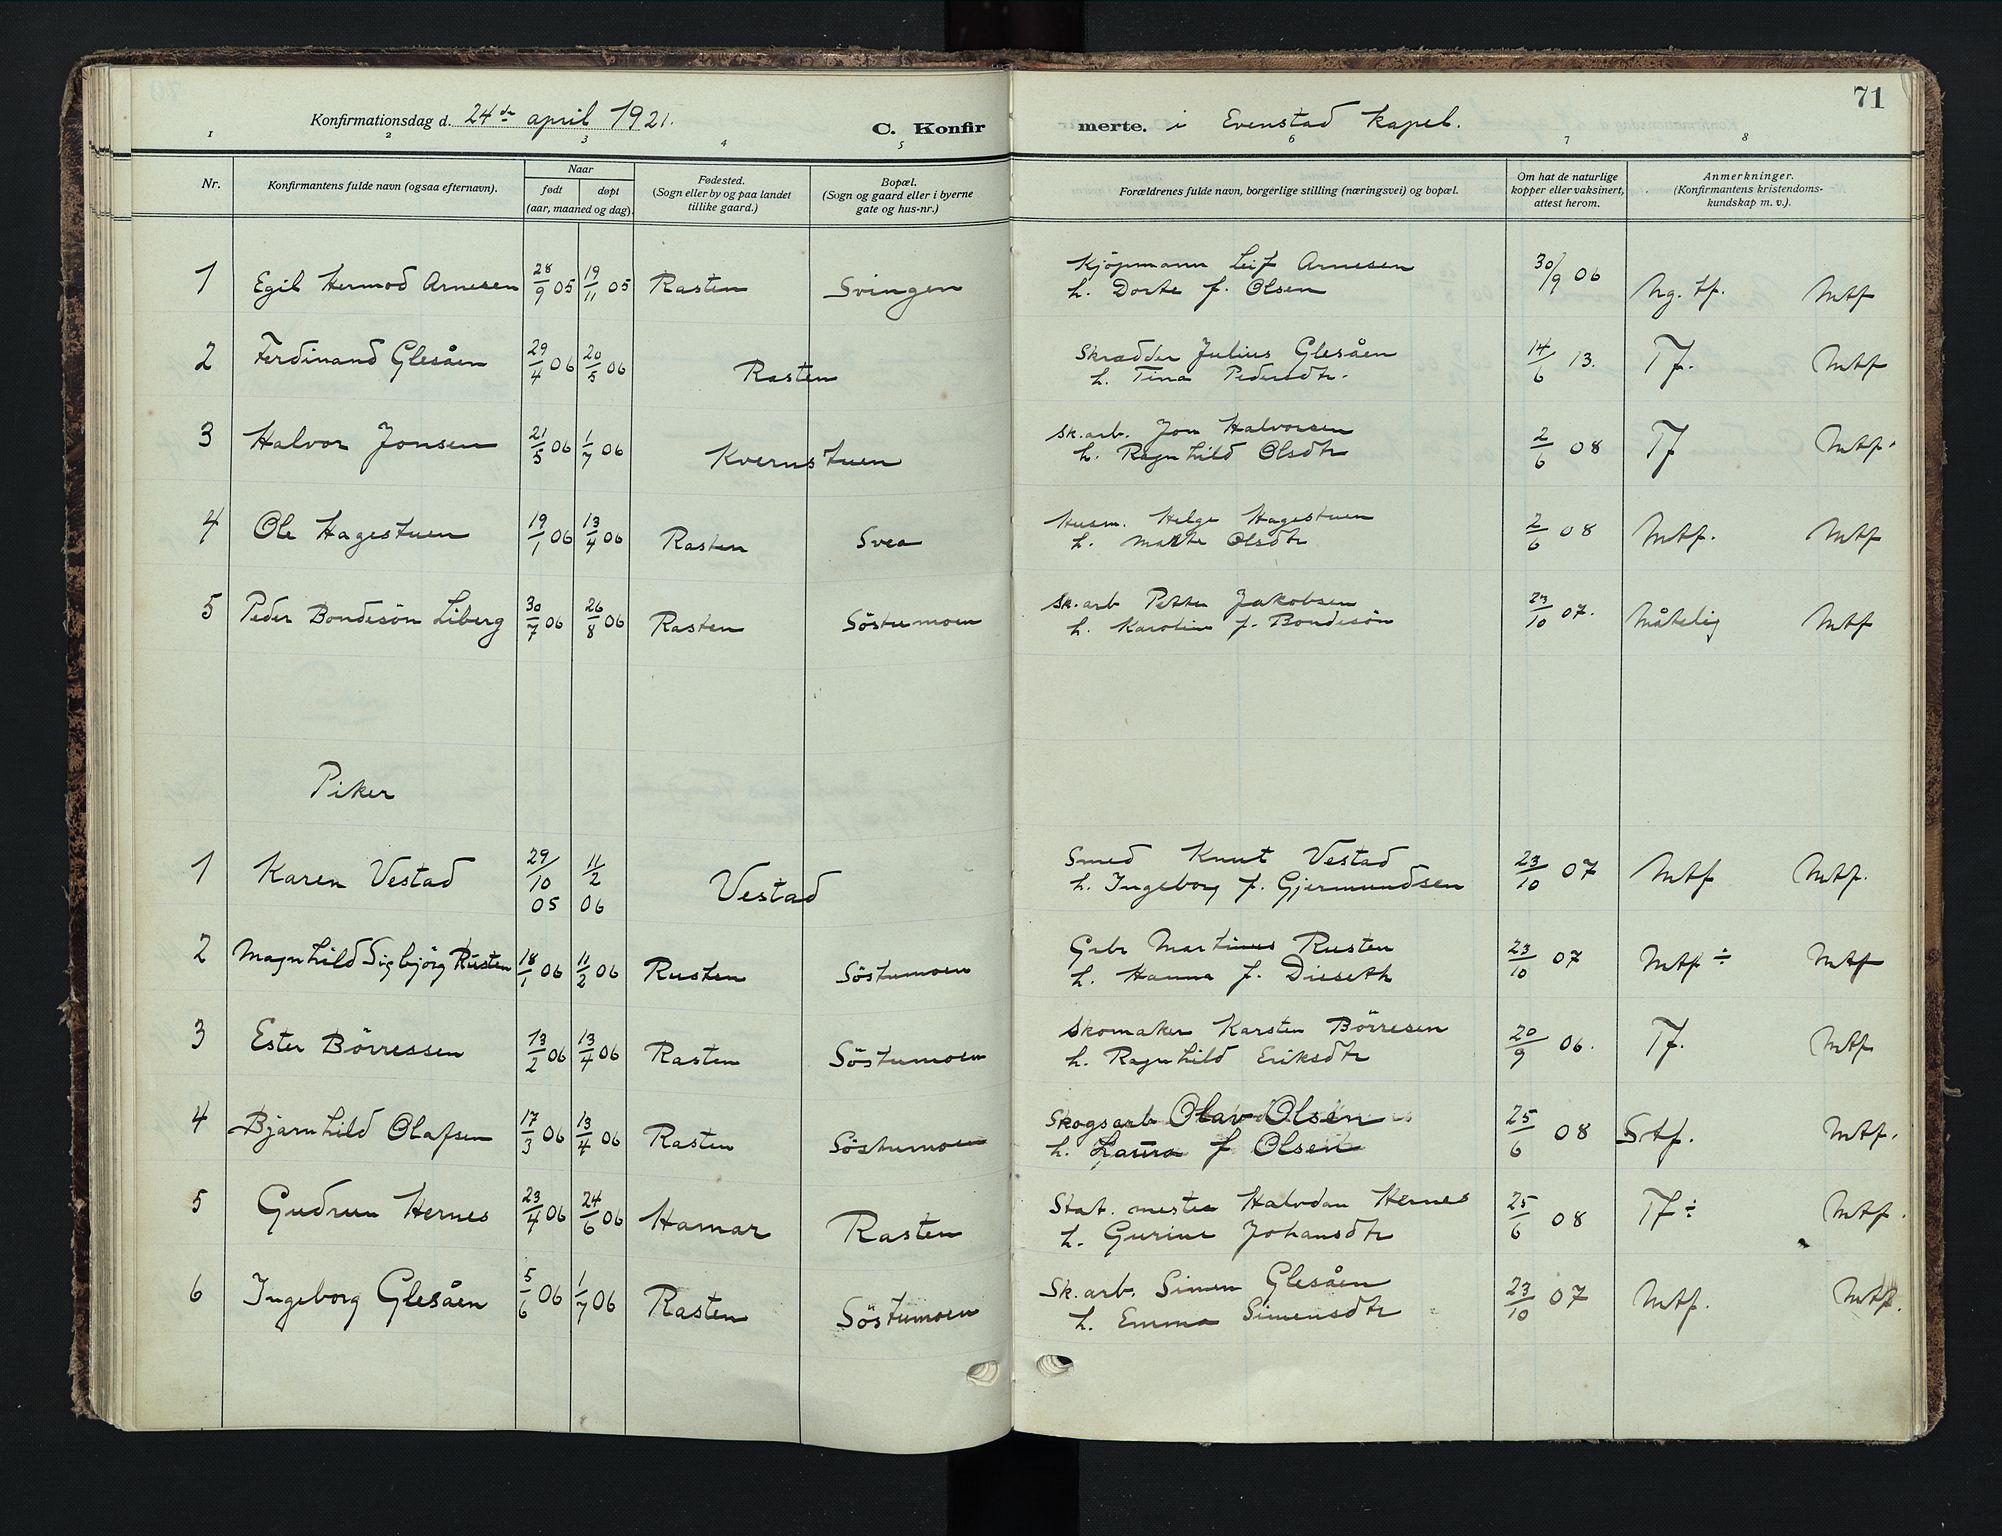 71
Konfirmationsdag d. 24de april 1921. C. Konfir merte. i Evenstad kapel.
1 2 3 4 5 6 7 8
Nr. Konfirmantens fulde navn (ogsaa efternavn). Naar født døpt (aar, maaned og dag). Fødested. (Sogn eller by og paa landet tillike gaard.) Bopæl. (Sogn og gaard eller i byerne gate og hus-nr.) Forældrenes fulde navn, borgerlige stilling (næringsvei) og bopæl. Om hat de naturlige kopper eller vaksinert, attest herom. Anmerkninger. (Konfirmantens kristendoms-kundskap m. v.).
1 Egil Hermod Arnesen 28/9 05 19/11 05 Rasten Svingen Kjöpmann Leif Arnesen 30/9 06 Ng. tf. Mtf
h. Dorte f. Olsen
2 Ferdinand Glesåen 29/4 06 20/5 06 Rasten Skrædder Julius Glesåen 14/6 13. Tf. Mtf
h. Tina Pedersdtr.
3 Halvor Jonsen 21/5 06 1/7 06 Kvernstuen Sk.arb. Jon Halvorsen 2/6 08 Tf Mtf.
h. Ragnhild Olsdtr
4 Ole Hagestuen 19/1 06 13/4 06 Rasten Svea Husm. Helge Hagestuen 2/6 08 Mtf. Mtf
h. Marte Olsdtr
5 Peder Bondesön Liberg 30/7 06 26/8 06 Rasten Söstumoen Sk.arb Petter Jakobsen 23/10 07. Måtelig Mtf
h. Karolin f. Bondesön
Piker
1 Karen Vestad 29/10 05 11/2 06 Vestad Smed Knut Vestad 23/10 07 Mtf Mtf.
h. Ingeborg f. Gjermundsen
2 Magnhild Sigbjörg Rusten 18/1 06 11/2 06 Rusten Söstumoen Gbr Martinus Rusten 23/10 07 Mtf ÷ Mtf
h. Hanna f. Dieseth
3 Ester Börressen 13/2 06 13/4 06 Rasten Söstumoen Skomaker Karsten Börresen 20/9 06. Tf. Mtf
h. Ragnhild Eriksdtr
4 Bjarnhild Olafsen 17/3 06 13/4 06 Rasten Söstumoen Skogsarb Olav Olsen 25/6 08 Stf. Mtf.
h. Laura f Olsen
5 Gudrun Hernes 23/4 06 24/6 06 Hamar Rasten Stat. mester Halvdan Hernes 25/6 08 Tf ÷ Mtf.
h. Gurine Johansdtr
6 Ingeborg Glesåen 5/6 06 1/7 06 Rasten Söstumoen Sk.arb. Simen Glesåen 23/10 07 Mtf. Mtf.
h. Emma Simensdtr